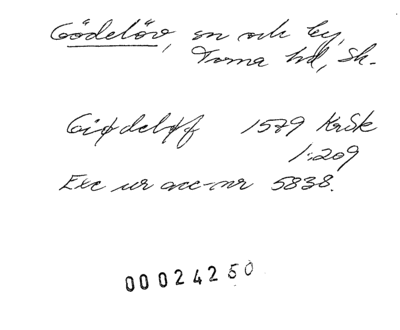 Gödelöv, sn och by,
Torna hd, Sk.
Giødeløf 1579 KrSk
1:209
Exc ur acc-nr 5838.
00024250